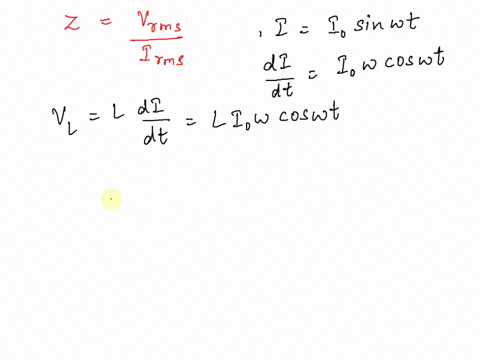 Z = V_rms / I_rms
, I = I_0 sin ωt
dI/dt = I_0 ω cos ωt
V_L = L dI/dt = L I_0 ω cos ωt